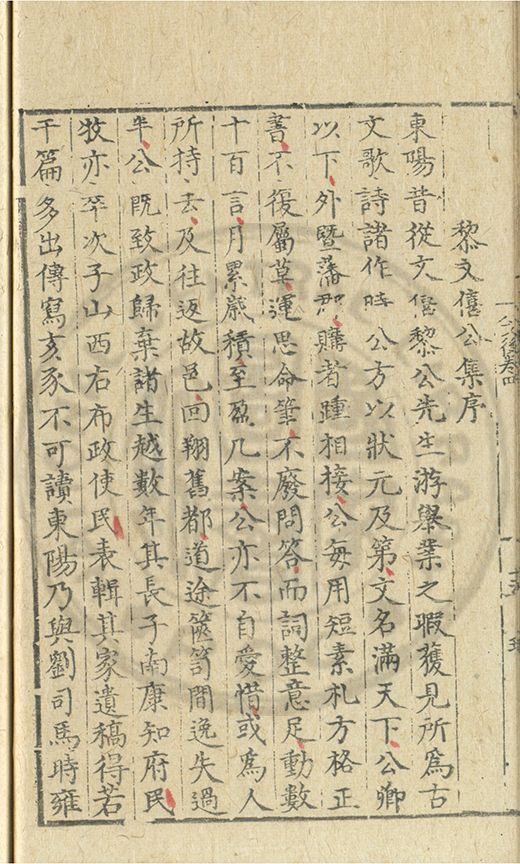 黎文僖公集序
東陽昔從文僖黎公先生游舉業之暇獲見所為古
文歌詩諸作時公方以狀元及第文名滿天下公卿
以下外暨藩郡購者踵相接公每用短素札方格正
書不復屬草運思命筆不廢問答而詞整意足動數
十百言月累歲積至盈几案公亦不自愛惜或為人
所持去及往返故邑回翔舊都道途篋笥間逸失過
半公既致政歸棄諸生越數年其長子南康知府民
牧亦卒次子山西右布政使民表輯其家遺稿得若
干篇多出傳寫亥豕不可讀東陽乃與劉司馬時雍